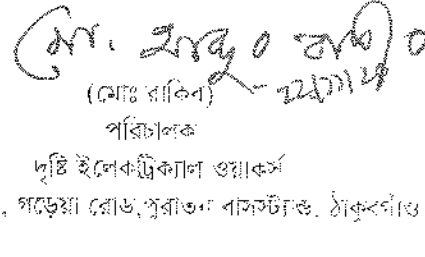 মো.
(মোঃ রাকিব)
পরিচালক
দৃষ্টি ইলেকট্রিক্যাল ওয়াকর্স
, গড়েয়া রোড,পুরাতন বাসস্ট্যান্ড. ঠাকুরগাঁও